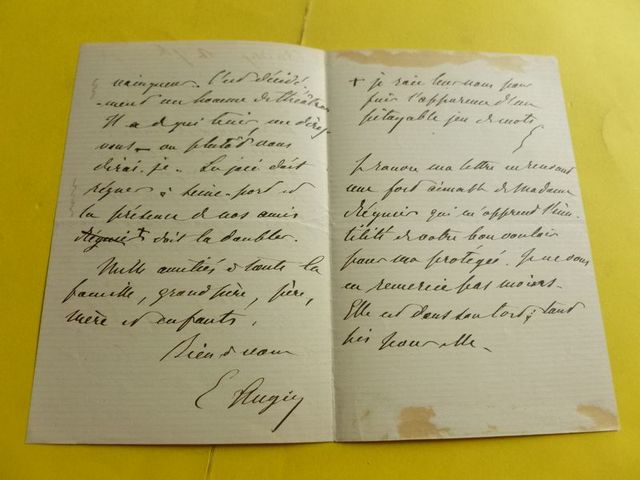 vainqueur. C'est décidé
ment un homme de théâtre.
Il a de qui tenir, me direz
vous — ou plutôt vous
dirai-je. La joie doit
régner à Seine-port et
la présence de nos amis
Régnier + doit la doubler.
Mille amitiés à toute la
famille, grand père, père,
mère et enfants.
Bien à vous
E Augier
+ je raie leur nom pour
fuir l'apparence d'un
pitoyable jeu de mots
Je rouvre ma lettre en recevant
une fort aimable de Madame
Régnier qui m'apprend l'inu-
tilité de votre bon vouloir
pour ma protégée. Je ne vous
en remercie pas moins.
Elle est dans son tort; tant
pis pour elle.